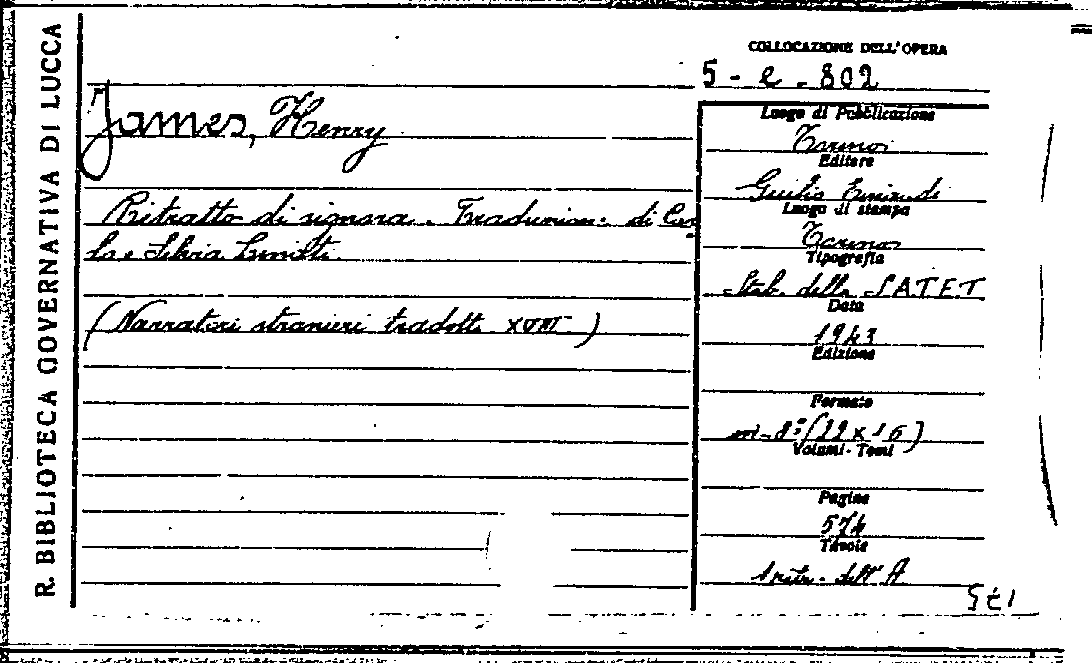 R. BIBLIOTECA GOVERNATIVA DI LUCCA
COLLOCAZIONE DELL'OPERA
5 - e - 802
James, Henry
Ritratto di signora. Traduzione di Car
la e Silvia
(Narratori stranieri tradotti XVIII)
Luogo di Pubblicazione
Torino
Editore
Giulio Einaudi
Luogo di stampa
Torino
Tipografia
Stab. della SATET
Data
1943
Edizione
Formato
in-8° (22 x 16)
Volumi - Tomi
Pagine
574
Tavole
1 ritr. dell'A